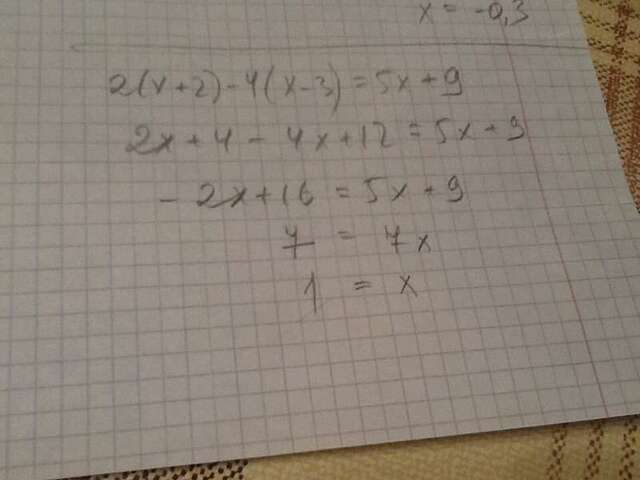 x = -0,3
2(x+2)-4(x-3)=5x+9
2x+4-4x+12=5x+9
-2x+16=5x+9
7=7x
1=x